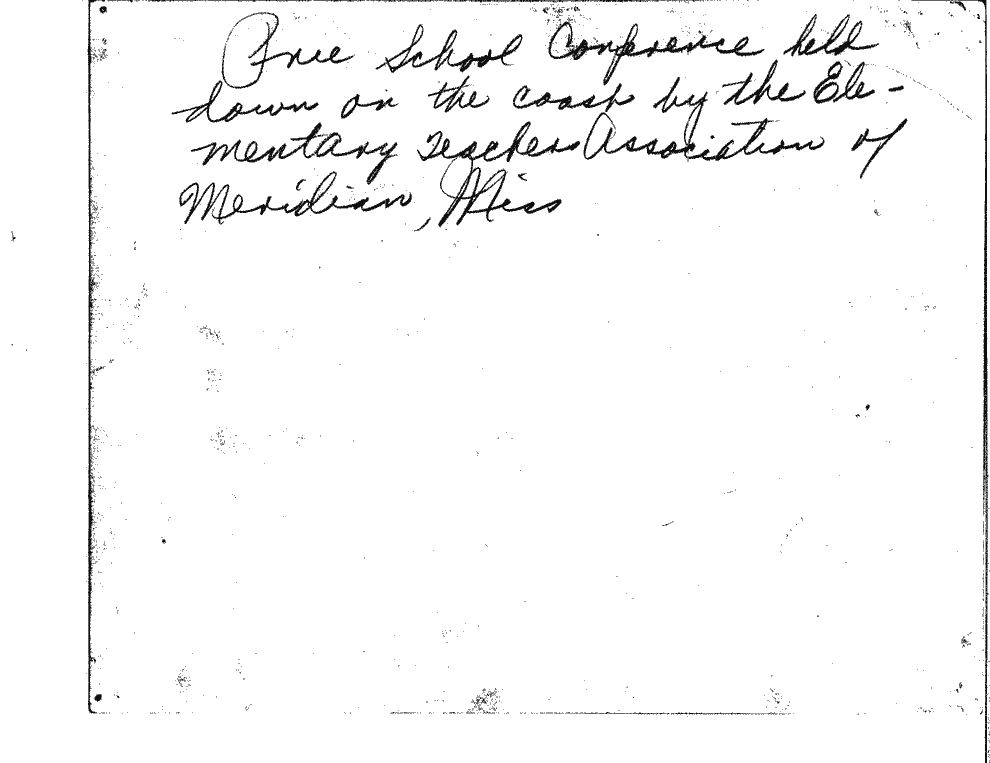 Free School Conference held
down on the coast by the Ele-
mentary Teachers Association of
Meridian, Miss